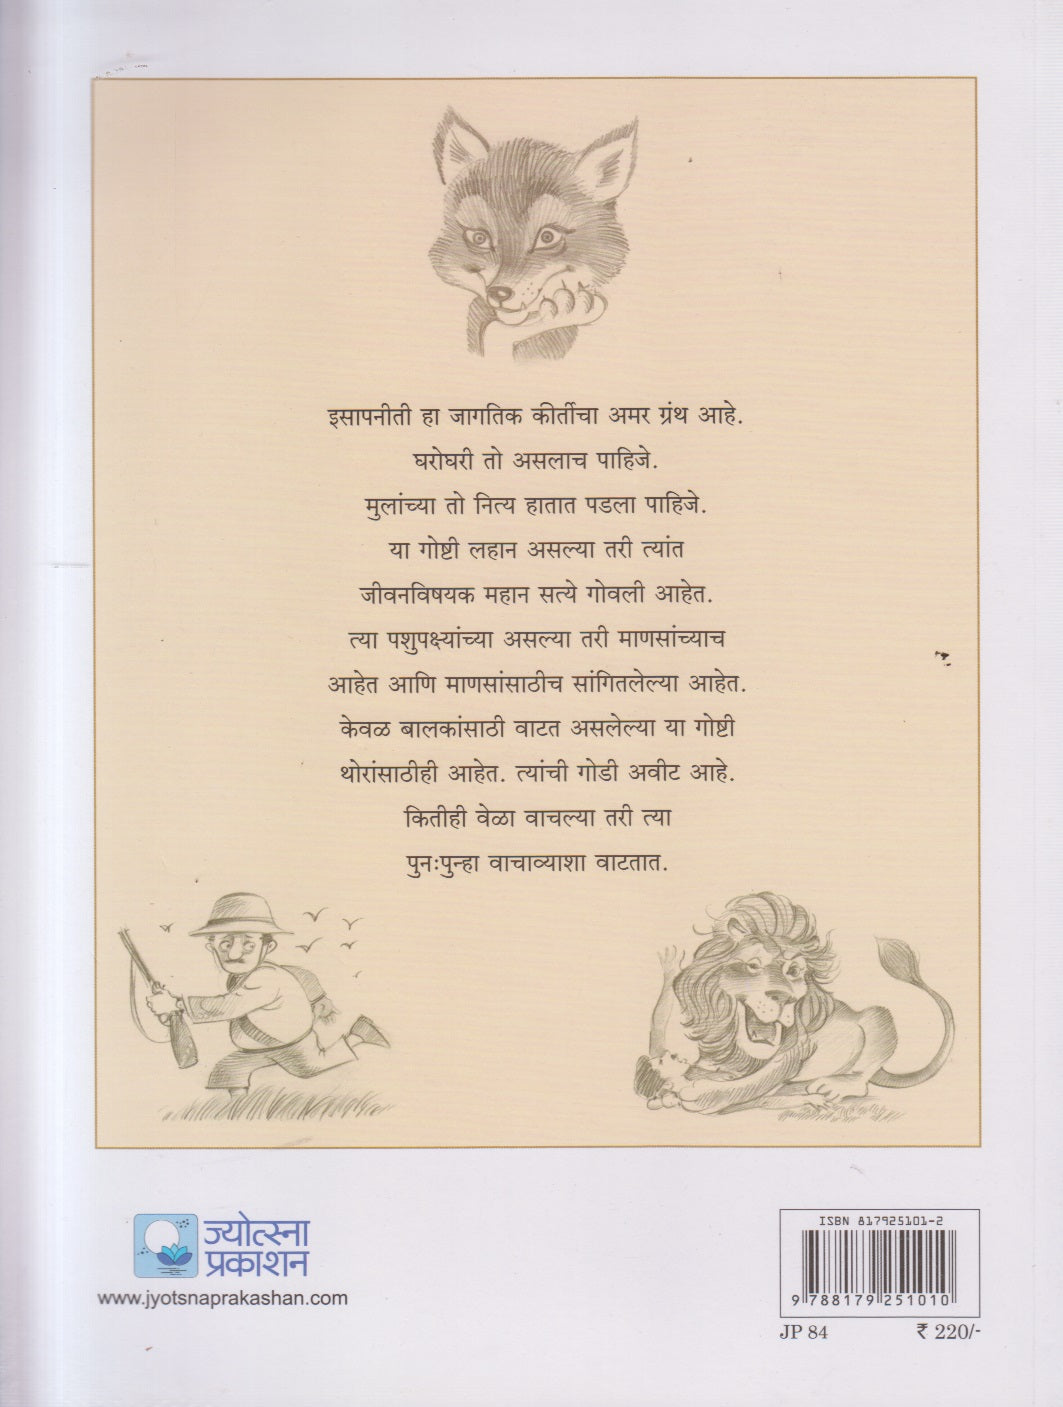 इसापनीती हा जागतिक कीर्तीचा अमर ग्रंथ आहे.
घरोघरी तो असलाच पाहिजे.
मुलांच्या तो नित्य हातात पडला पाहिजे.
या गोष्टी लहान असल्या तरी त्यांत
जीवनविषयक महान सत्ये गोवली आहेत.
त्या पशुपक्ष्यांच्या असल्या तरी माणसांच्याच
आहेत आणि माणसांसाठीच सांगितलेल्या आहेत.
केवळ बालकांसाठी वाटत असलेल्या या गोष्टी
थोरांसाठीही आहेत. त्यांची गोडी अवीट आहे.
कितीही वेळा वाचल्या तरी त्या
पुनःपुन्हा वाचाव्याशा वाटतात.
ज्योत्स्ना
प्रकाशन
www.jyotsnaprakashan.com
ISBN 817925101-2
9 788179 251010
JP 84 ₹ 220/-